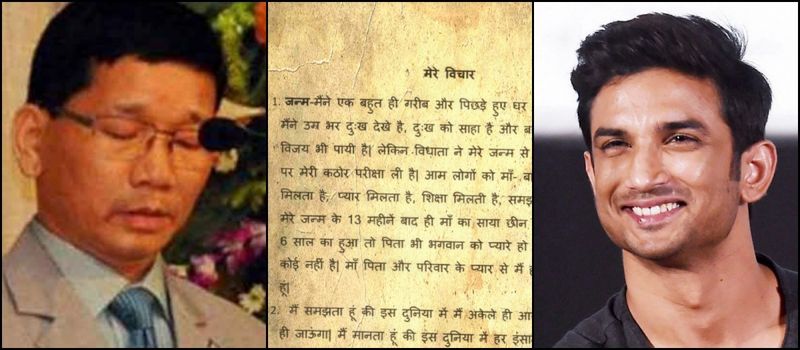 मेरे विचार
1. जन्म-मैंने एक बहुत ही गरीब और पिछड़े हुए घर
मैंने उम्र भर दुःख देखे है, दुःख को साहा है और
विजय भी पायी है| लेकिन विधाता ने मेरे जन्म से
पर मेरी कठोर परीक्षा ली है| आम लोगों को माँ-
मिलता है, प्यार मिलता है, शिक्षा मिलती है,
मेरे जन्म के 13 महीनें बाद ही माँ का साया छीन
6 साल का हुआ तो पिता भी भगवान को प्यारे हो
कोई नहीं है| माँ पिता और परिवार के प्यार से मैं
हूं|
2. मैं समझता हूं की इस दुनिया में मैं अकेले ही
ही जाऊंगा| मैं मानता हूं की इस दुनिया में हर